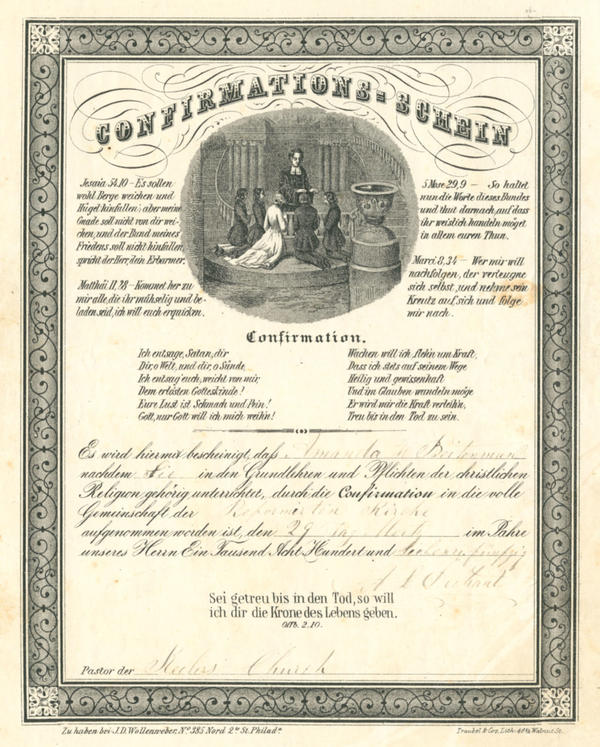 CONFIRMATIONS=SCHEIN
Jesaia 54.10 – Es sollen
wohl Berge weichen und
Hügel hinfallen; aber meine
Gnade soll nicht von dir wei-
chen, und der Bund meines
Friedens soll nicht hinfallen,
spricht der Herr, dein Erbarmer.
Matthäi 11,28 – Kommet her zu
mir alle, die ihr mühselig und be-
laden seid, ich will euch erquicken.
5 Mose 29,9 – So haltet
nun die Worte dieses Bundes
und thut darnach, auf dass
ihr weislich handeln möget
in allem euren Thun.
Marci 8,34 – Wer mir will
nachfolgen, der verleugne
sich selbst, und nehme sein
Kreutz auf sich und folge
mir nach.
Confirmation.
Ich entsage, Satan, dir
Dir, o Welt, und dir, o Sünde,
Ich entsag' euch, weicht von mir,
Dem erlösten Gotteskinde!
Eure Lust ist Schmach und Pein!
Gott, nur Gott will ich mich weihn!
Wachen will ich, flehn um Kraft,
Dass ich stets auf seinem Wege
Heilig und gewissenhaft
Und im Glauben wandeln möge
Er wird mir die Kraft verleihn,
Treu bis in den Tod zu sein.
Es wird hiermit bescheinigt, daß Amanda
nachdem Sie in den Grundlehren und Pflichten der christlichen
Religion gehörig unterrichtet, durch die Confirmation in die volle
Gemeinschaft der Reformirten Kirche
aufgenommen worden ist, den 29 im Jahre
unseres Herrn Ein Tausend Acht Hundert und fünfzig
Sei getreu bis in den Tod, so will
ich dir die Krone des Lebens geben.
Offb. 2.10.
Pastor der Keelers Church
Zu haben bei J.D. Wollenweber, No. 385 Nord 2te St. Philada.
Traubel & Co. Lith. 46½ Walnut St.